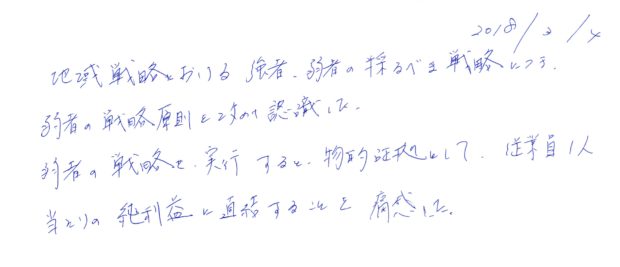 2018/2/4
地域戦略における強者、弱者の採るべき戦略につき、
弱者の戦略原則を改めて認識した。
弱者の戦略を、実行すると、物的証拠として、従業員1人
当たりの純利益に直結することを痛感した。